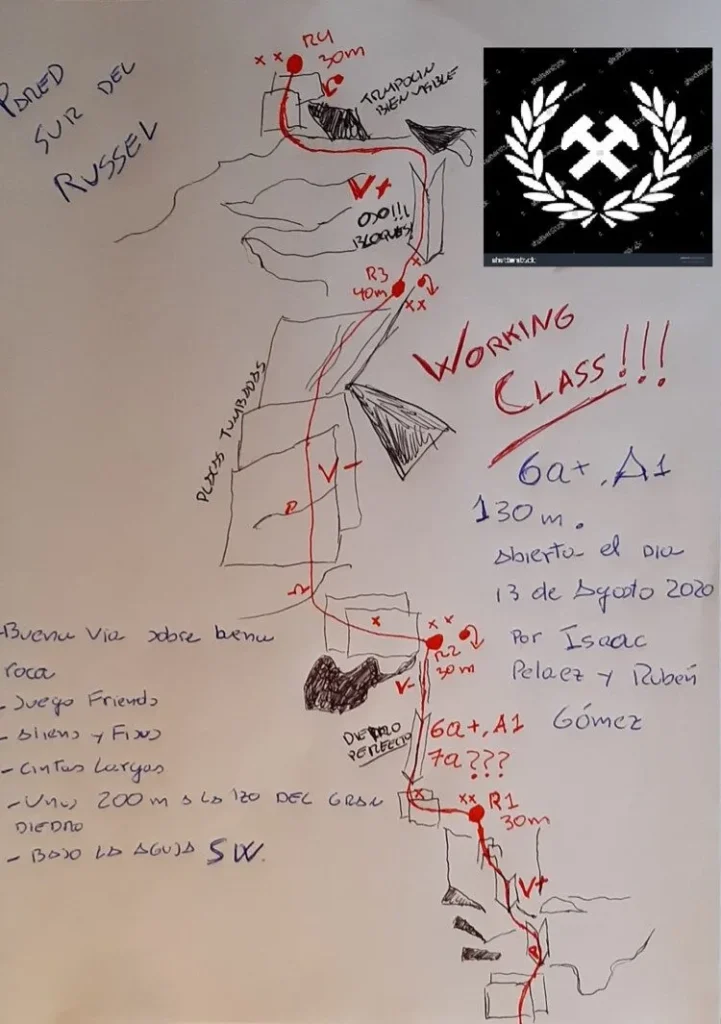 R4
30m
x x
PARED
SUR DEL
RUSSEL
TRAPOLIN
BIEN VISIBLE
V+
OJO!!!
BLOQUES!
x
R3
40m
xx
WORKING
CLASS!!!
PLACAS TUMBADAS
V-
6a+, A1
130 m.
Abierta el Dia
13 de Agosto 2020
Por Isaac
Pelaez y Rubén
Gómez
x
x x
R2
30m
V-
DIEDRO
PERFECTO
6a+, A1
7a???
x
xx R1
30m
V+
-Buena Via sobre buena
roca
- Juego Friends
- Aliens y Fixus
- Cintas Largas
- Unos 200 m A LA IZQ DEL GRAN
DIEDRO
- BAJO LA AGUJA SW.
shutterstock